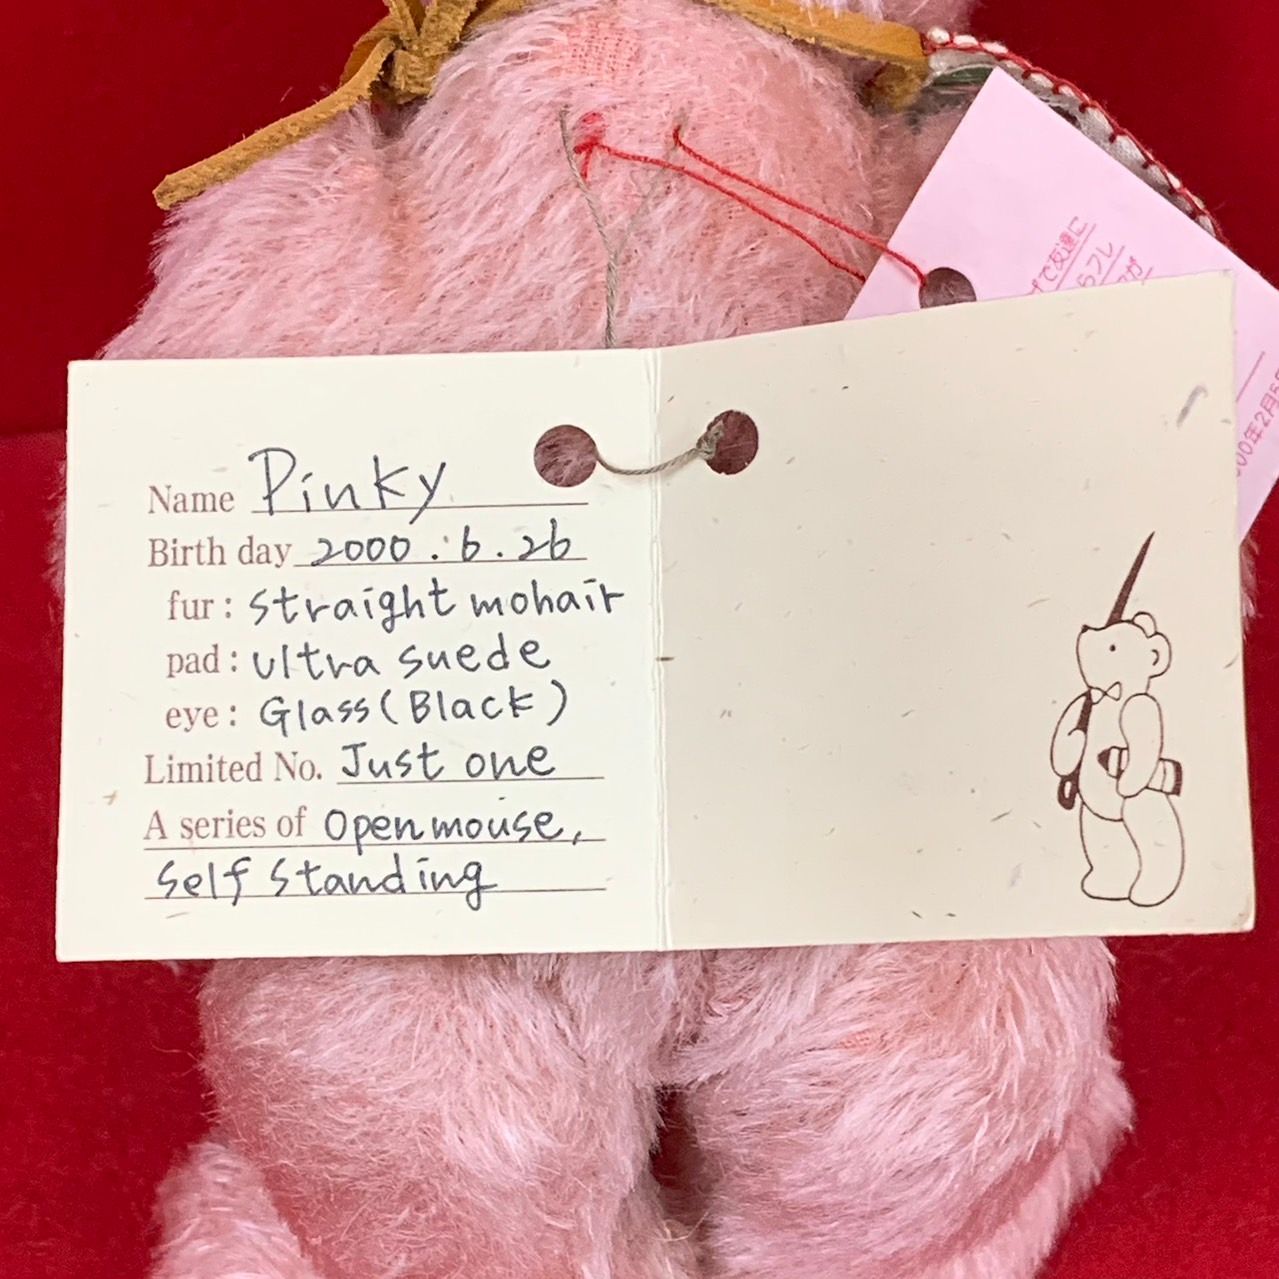 Name Pinky
Birth day 2000.6.26
fur: straight mohair
pad: ultra suede
eye: Glass (Black)
Limited No. Just one
A series of Open mouse,
Self Standing
て友達に
らフレ